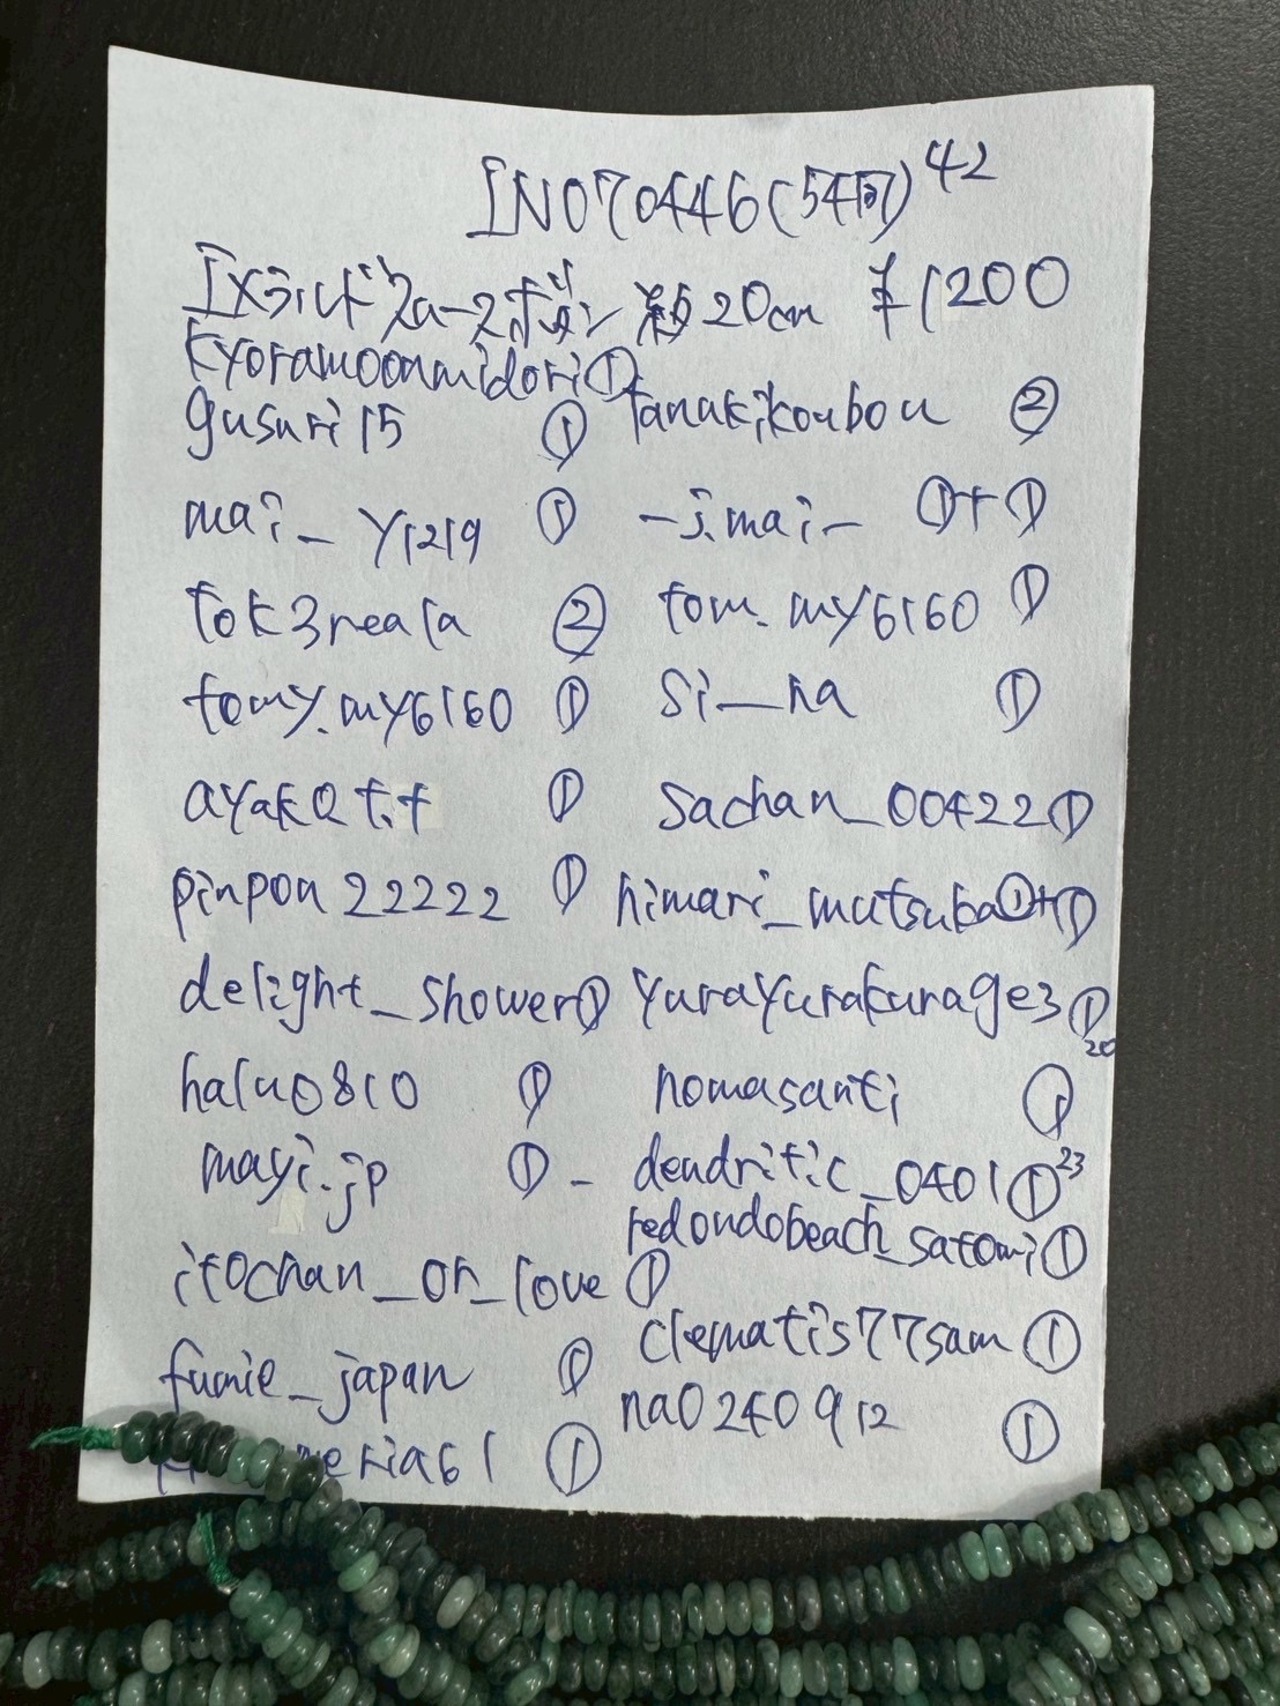 IN070446(54両)42
エメラルド
20cm ¥1200
kyoramoonmidori①
gusuri15 ① tanakikoubou ②
mai_y1219 ① -j.mai- ①+①
tok3reala ② tom.my6160 ①
tomy.my6160 ① si__na ①
ayak0t.t ① sachan_00422①
pinpon22222 ① himari_mutsuba①+①
delight_shower① yurayurakurage3①
20
halu0810 ① nomasanti ①
mayi.jp ① - dendritic_0401①23
redondobeach_satomi①
itochan_on_love ①
clematis77sam ①
fumie_japan ①
na0240912 ①
neria61 ①